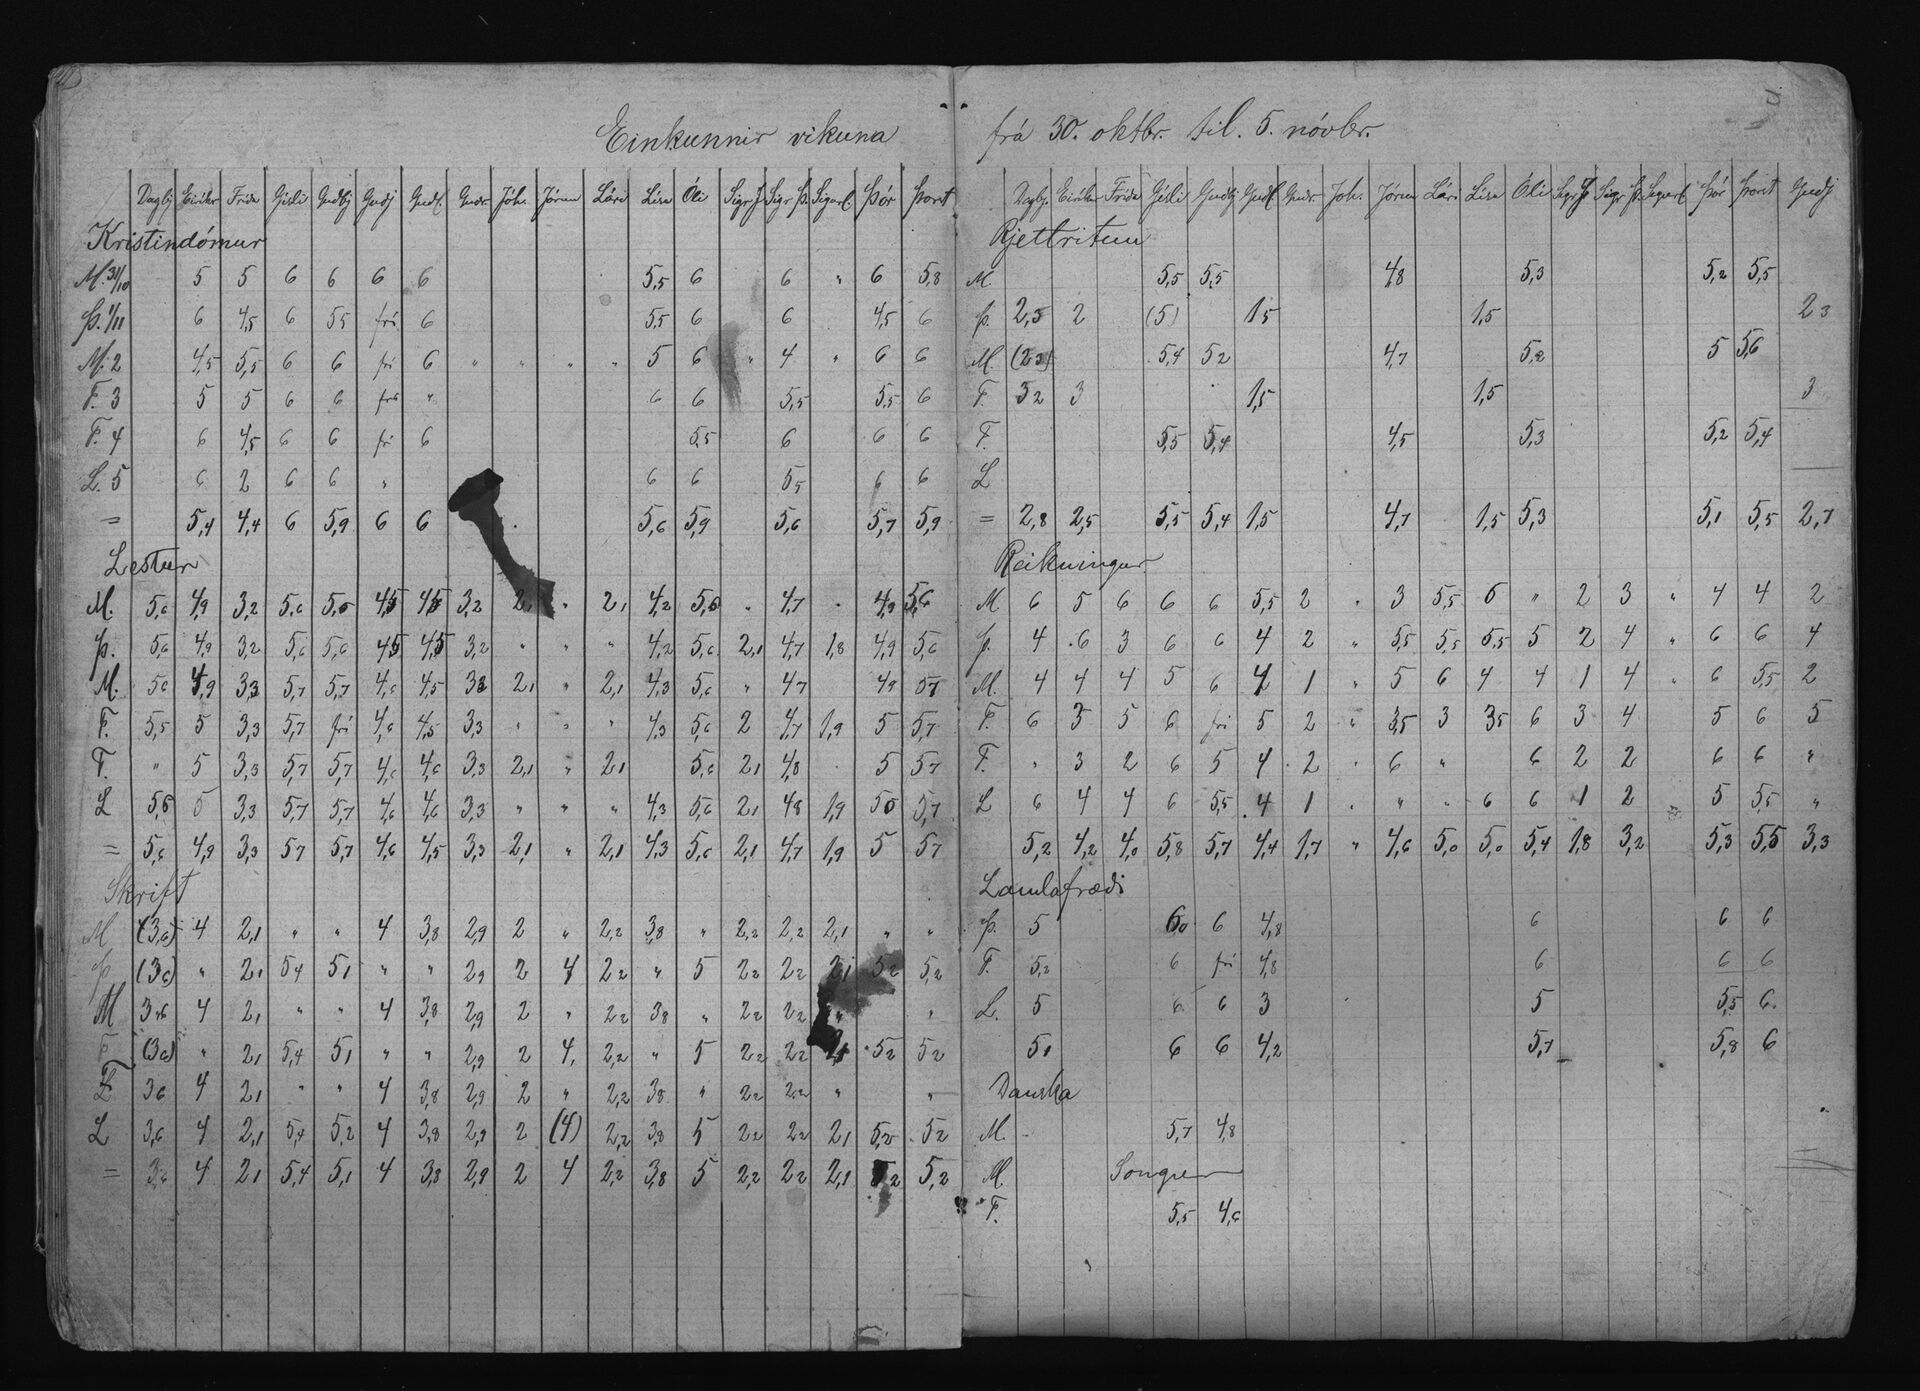 Einkunnir vikuna
Dagbj Eiríkr Fríða Gísli Guðbj Guðj Guðl. Guðr. Jóh. Jórun Lári Lísa Óli Sigr J. Sigr Þ. Sigurl Þór Þorst
Kristindómur
M. 31/10 5 5 6 6 6 6 5,5 6 6 " 6 5,8
Þ. 1/11 6 4,5 6 5,5 frí 6 5,5 6 6 4,5 6
M. 2 4,5 5,5 6 6 frí 6 " " " " 5 6 " 4 " 6 6
F. 3 5 5 6 6 frí " 6 6 5,5 5,5 6
F. 4 6 4,5 6 6 frí 6 5,5 6 6 6
L. 5 6 2 6 6 " 6 6 5,5 6 6
= 5,4 4,4 6 5,9 6 6 5,6 5,9 5,6 5,7 5,9
Lestur
M. 5,6 4,9 3,2 5,6 5,6 4,5 4,5 3,2 2,1 " 2,1 4,2 5,6 " 4,7 " 4,9 5,6
Þ. 5,6 4,9 3,2 5,6 5,6 4,5 4,5 3,2 " " " 4,2 5,6 2,1 4,7 1,8 4,9 5,6
M. 5,6 4,9 3,3 5,7 5,7 4,6 4,5 3,3 2,1 " 2,1 4,3 5,6 " 4,7 4,9 5,7
F. 5,5 5 3,3 5,7 frí 4,6 4,5 3,3 " " " 4,3 5,6 2 4,7 1,9 5 5,7
F. " 5 3,3 5,7 5,7 4,6 4,6 3,3 2,1 " 2,1 5,6 2,1 4,8 . 5 5,7
L 5,6 5 3,3 5,7 5,7 4,6 4,6 3,3 " " " 4,3 5,6 2,1 4,8 1,9 5,0 5,7
= 5,6 4,9 3,3 5,7 5,7 4,6 4,5 3,3 2,1 " 2,1 4,3 5,6 2,1 4,7 1,9 5 5,7
Skrift
M (3,6) 4 2,1 " " 4 3,8 2,9 2 " 2,2 3,8 " 2,2 2,2 2,1 " "
Þ (3,6) " 2,1 5,4 5,1 " " 2,9 2 4 2,2 " 5 2,2 2,2 2,1 5,2 5,2
M 3,6 4 2,1 " " 4 3,8 2,9 2 " 2,2 3,8 " 2,2 2,2 " "
F (3,6) " 2,1 5,4 5,1 " " 2,9 2 4, 2,2 " 5 2,2 2,2 2,1 5,2 5,2
F 3,6 4 2,1 " " 4 3,8 2,9 2 " 2,2 3,8 " 2,2 2,2 " "
L 3,6 4 2,1 5,4 5,2 4 3,8 2,9 2 (4) 2,2 3,8 5 2,2 2,2 2,1 5,2 5,2
= 3,6 4 2,1 5,4 5,1 4 3,8 2,9 2 4 2,2 3,8 5 2,2 2,2 2,1 5,2 5,2
frá 30. oktbr. til. 5. nóvbr.
Dagbj. Eiríkr Fríða Gísli Guðbj Guðl Guðr. Joh. Jórun Lári Lísa Óli Sigr J Sigr Þ. Sigurl Þór Þorst Guðj
Rjettritun
M. 5,5 5,5 4,8 5,3 5,2 5,5
Þ. 2,3 2 (5) 1,5 1,5 2,3
M. (2,3) 5,4 5,2 4,7 5,2 5 5,6
F. 3,2 3 1,5 1,5 3
F. 5,5 5,4 4,5 5,3 5,2 5,4
L
= 2,8 2,5 5,5 5,4 1,5 4,7 1,5 5,3 5,1 5,5 2,7
Reikningur
M 6 5 6 6 6 5,5 2 " 3 5,5 6 " 2 3 " 4 4 2
Þ. 4 6 3 6 6 4 2 " 5,5 5,5 5,5 5 2 4 " 6 6 4
M. 4 4 4 5 6 4 1 " 5 6 4 4 1 4 " 6 5,5 2
F. 6 3 5 6 frí 5 2 " 3,5 3 3,5 6 3 4 5 6 5
F. " 3 2 6 5 4 2 " 6 " 6 2 2 6 6 "
L 6 4 4 6 5,5 4 1 " " " 6 6 1 2 5 5,5 "
5,2 4,2 4,0 5,8 5,7 4,4 1,7 " 4,6 5,0 5,0 5,4 1,8 3,2 5,3 5,5 3,3
Landafræði
Þ. 5 6,0 6 4,8 6 6 6
F. 5,2 6 frí 4,8 6 6 6
L. 5 6 6 3 5 5,5 6
5,1 6 6 4,2 5,7 5,8 6
Danska
M. 5,7 4,8
M. Söngur
F. 5,5 4,6